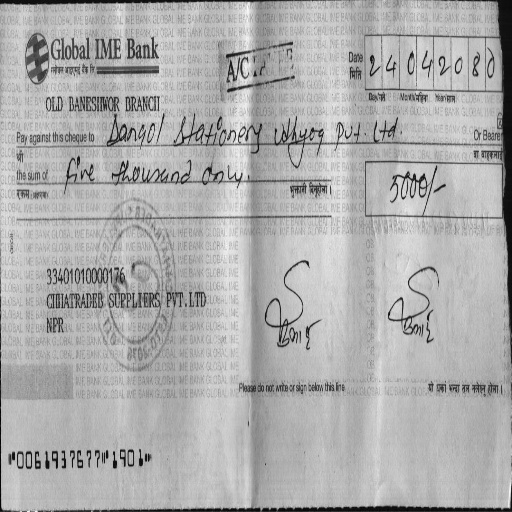 Global IME Bank
ग्लोबल आइएमई बैंक लि.
A/C
Date मिति 24042080
Day/गते Month/महिना Year/साल
OLD BANESHWOR BRANCH
Pay against this cheque to Dangol Stationery Udhyog Pvt. Ltd. Or Bearer
श्री या वाहकलाई
the sum of five thousand only.
रकम भुक्तानी दिनुहोला ।
5000/-
33401010000176
CHHATRADEB SUPPLIERS PVT.LTD
NPR
Please do not write or sign below this line
यो रेखा भन्दा तल नलेख्नु होला ।
"00619376??"1901"